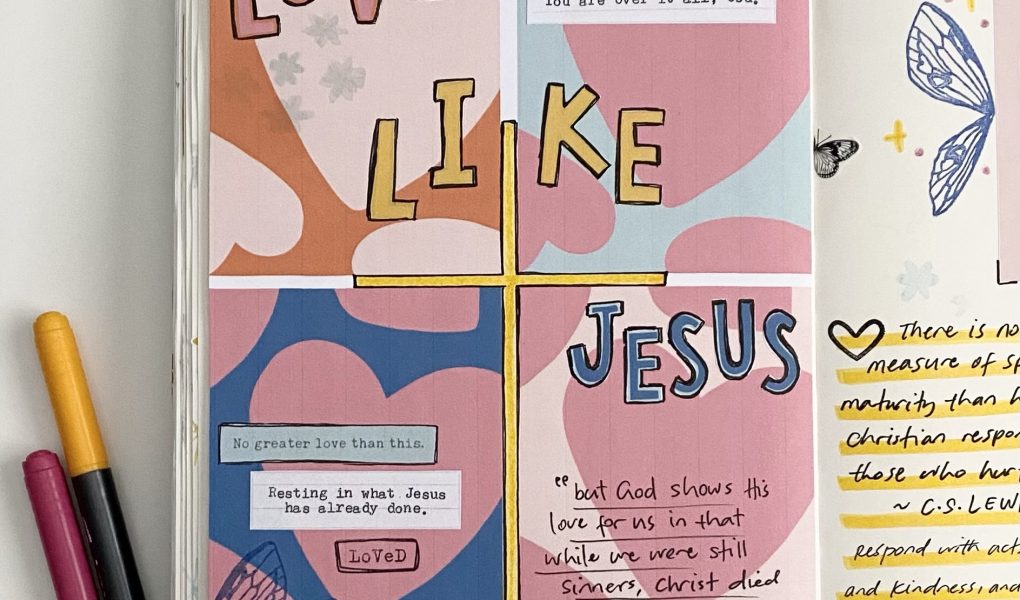 LOV
You are over it all, God.
LIKE
JESUS
No greater love than this.
Resting in what Jesus
has already done.
LoVeD
"but God shows His
love for us in that
while we were still
sinners, Christ died
There is no
measure of
maturity than
Christian
those who
~ C.S.
respond with
and kindness, and